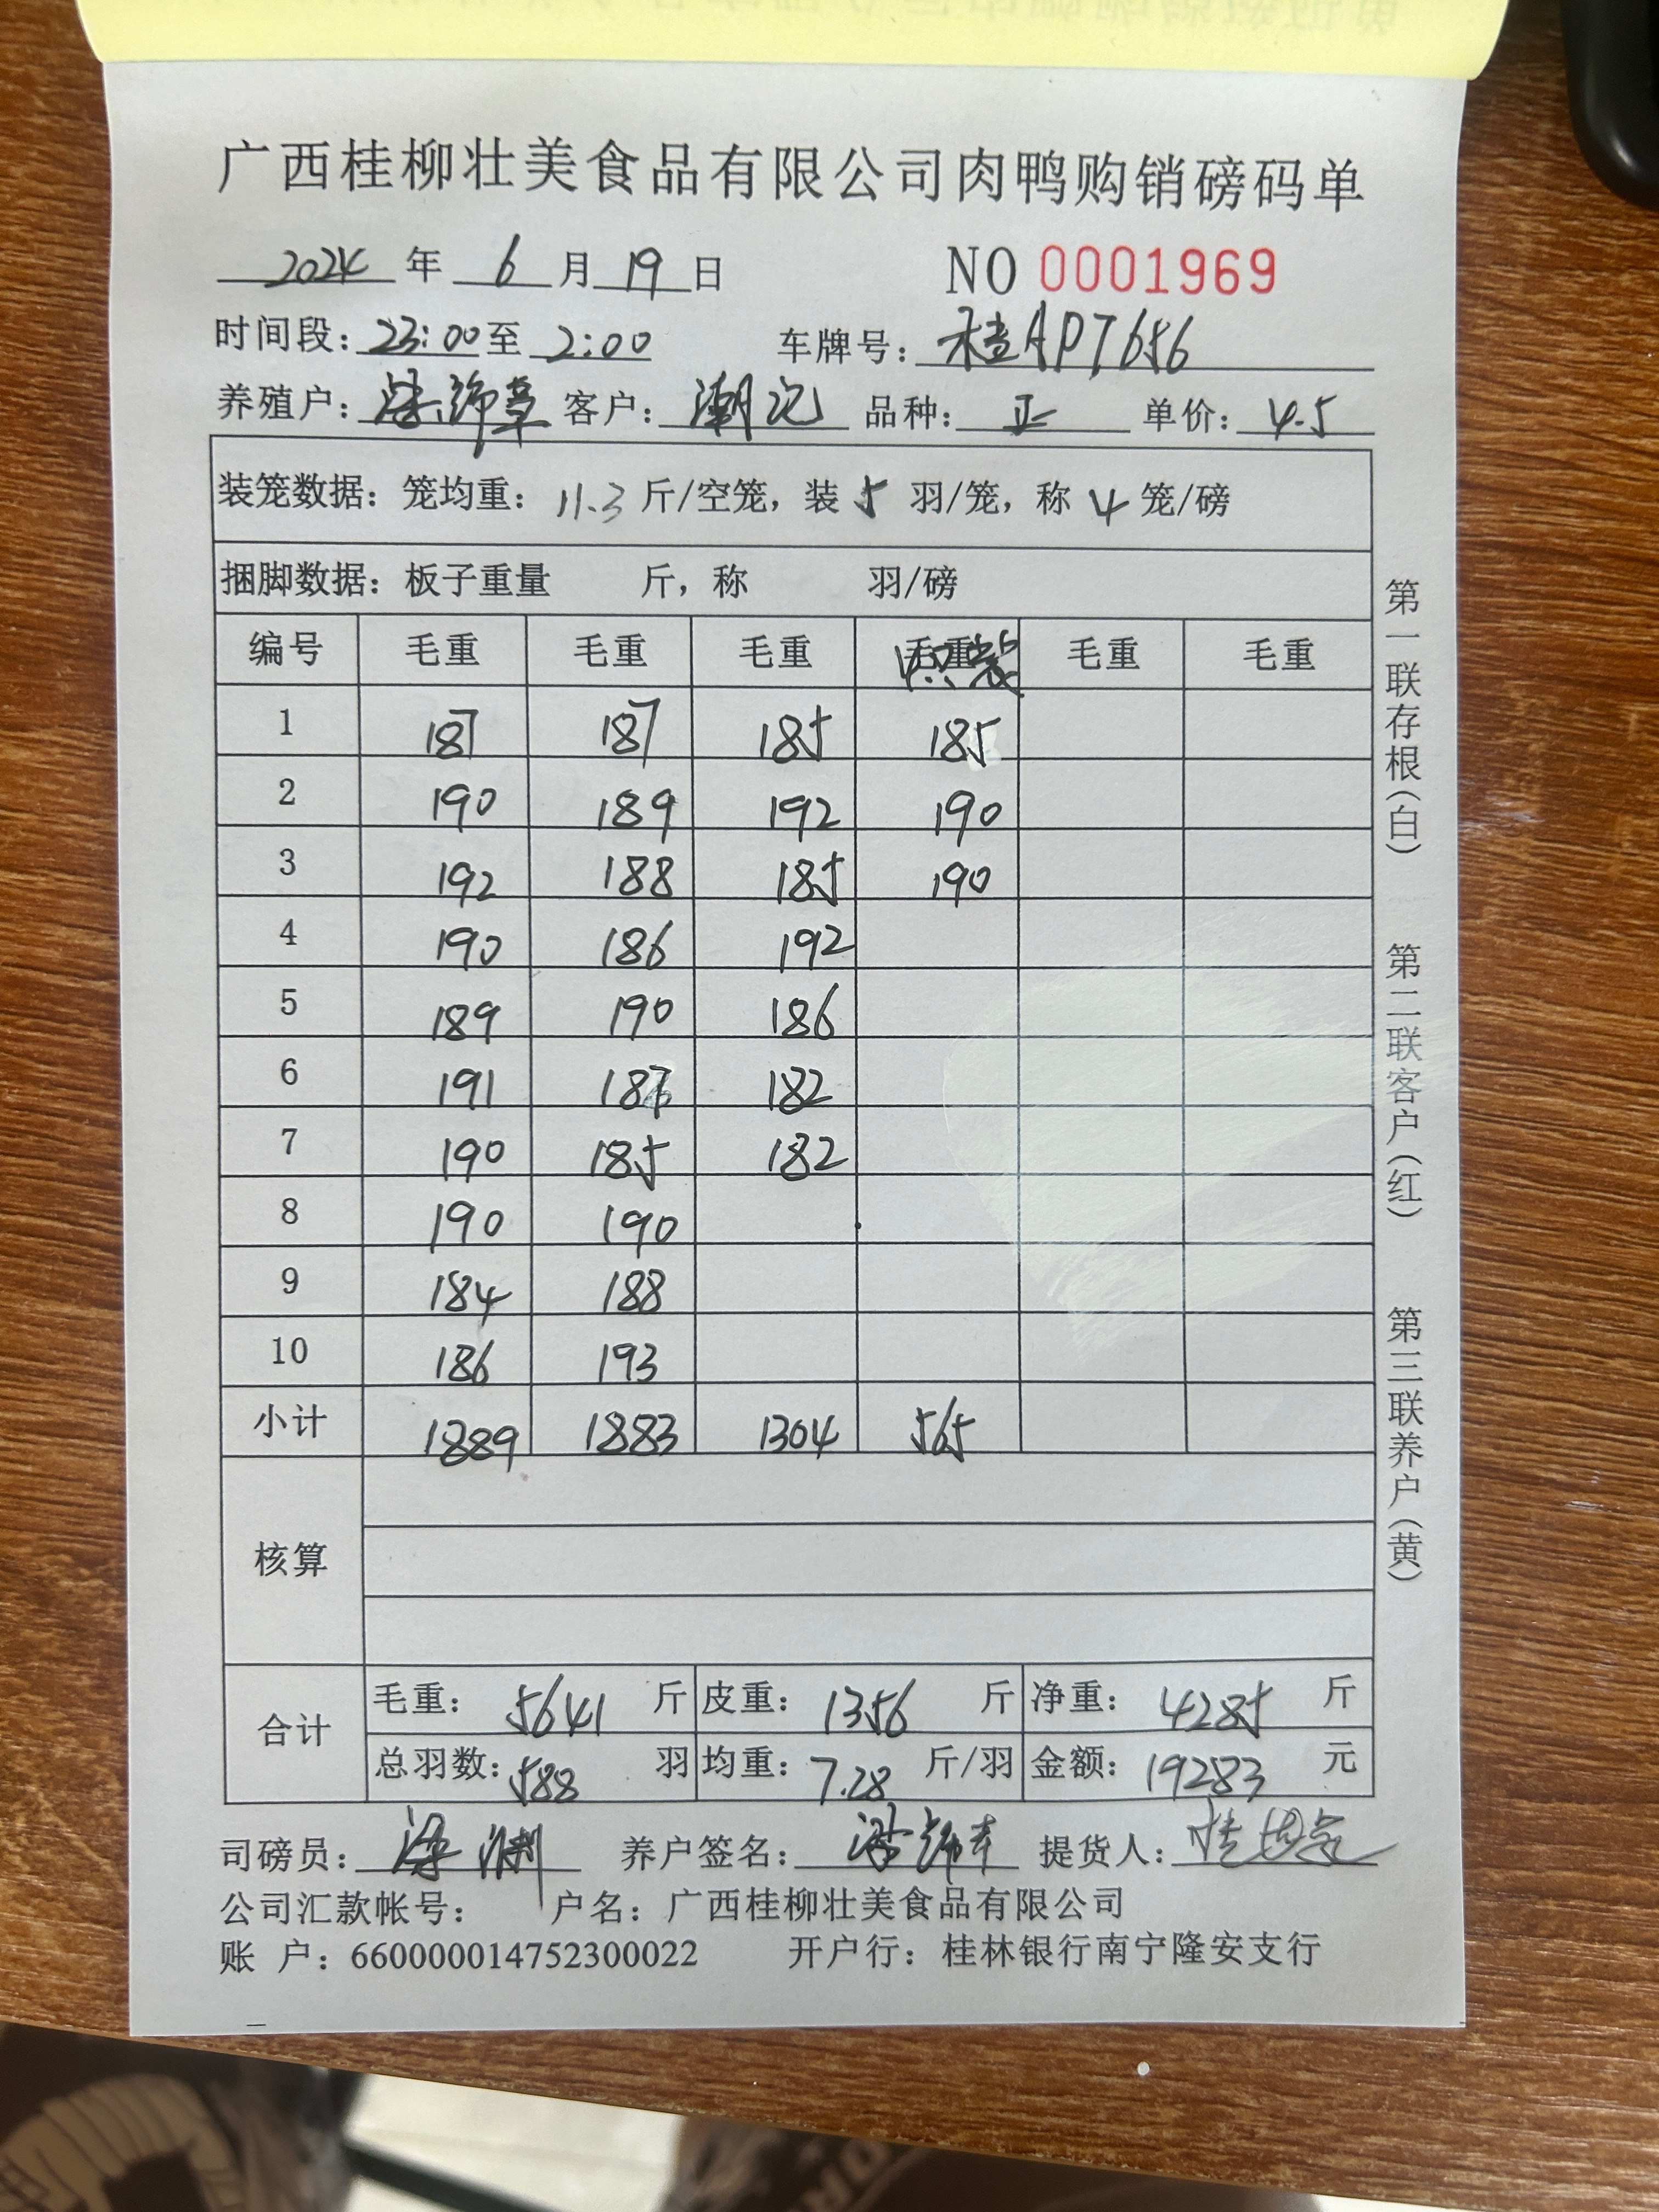 广西桂柳壮美食品有限公司肉鸭购销磅码单
2024 年 6 月 19 日 NO 0001969
时间段：23:00 至 2:00 车牌号：桂APT656
养殖户： 客户：潮记 品种：正 单价：4.5
装笼数据：笼均重：11.3 斤/空笼，装 5 羽/笼，称 4 笼/磅
捆脚数据：板子重量 斤，称 羽/磅
编号 毛重 毛重 毛重 毛重 毛重 毛重
1 187 187 185 185
2 190 189 192 190
3 192 188 185 190
4 190 186 192
5 189 190 186
6 191 187 182
7 190 185 182
8 190 190
9 184 188
10 186 193
小计 1889 1883 1304 565
核算
合计 毛重：5641 斤 皮重：1356 斤 净重：4285 斤
总羽数：588 羽 均重：7.28 斤/羽 金额：19283 元
司磅员： 养户签名： 提货人：
公司汇款帐号： 户名：广西桂柳壮美食品有限公司
账 户：660000014752300022 开户行：桂林银行南宁隆安支行
第一联存根（白） 第二联客户（红） 第三联养户（黄）